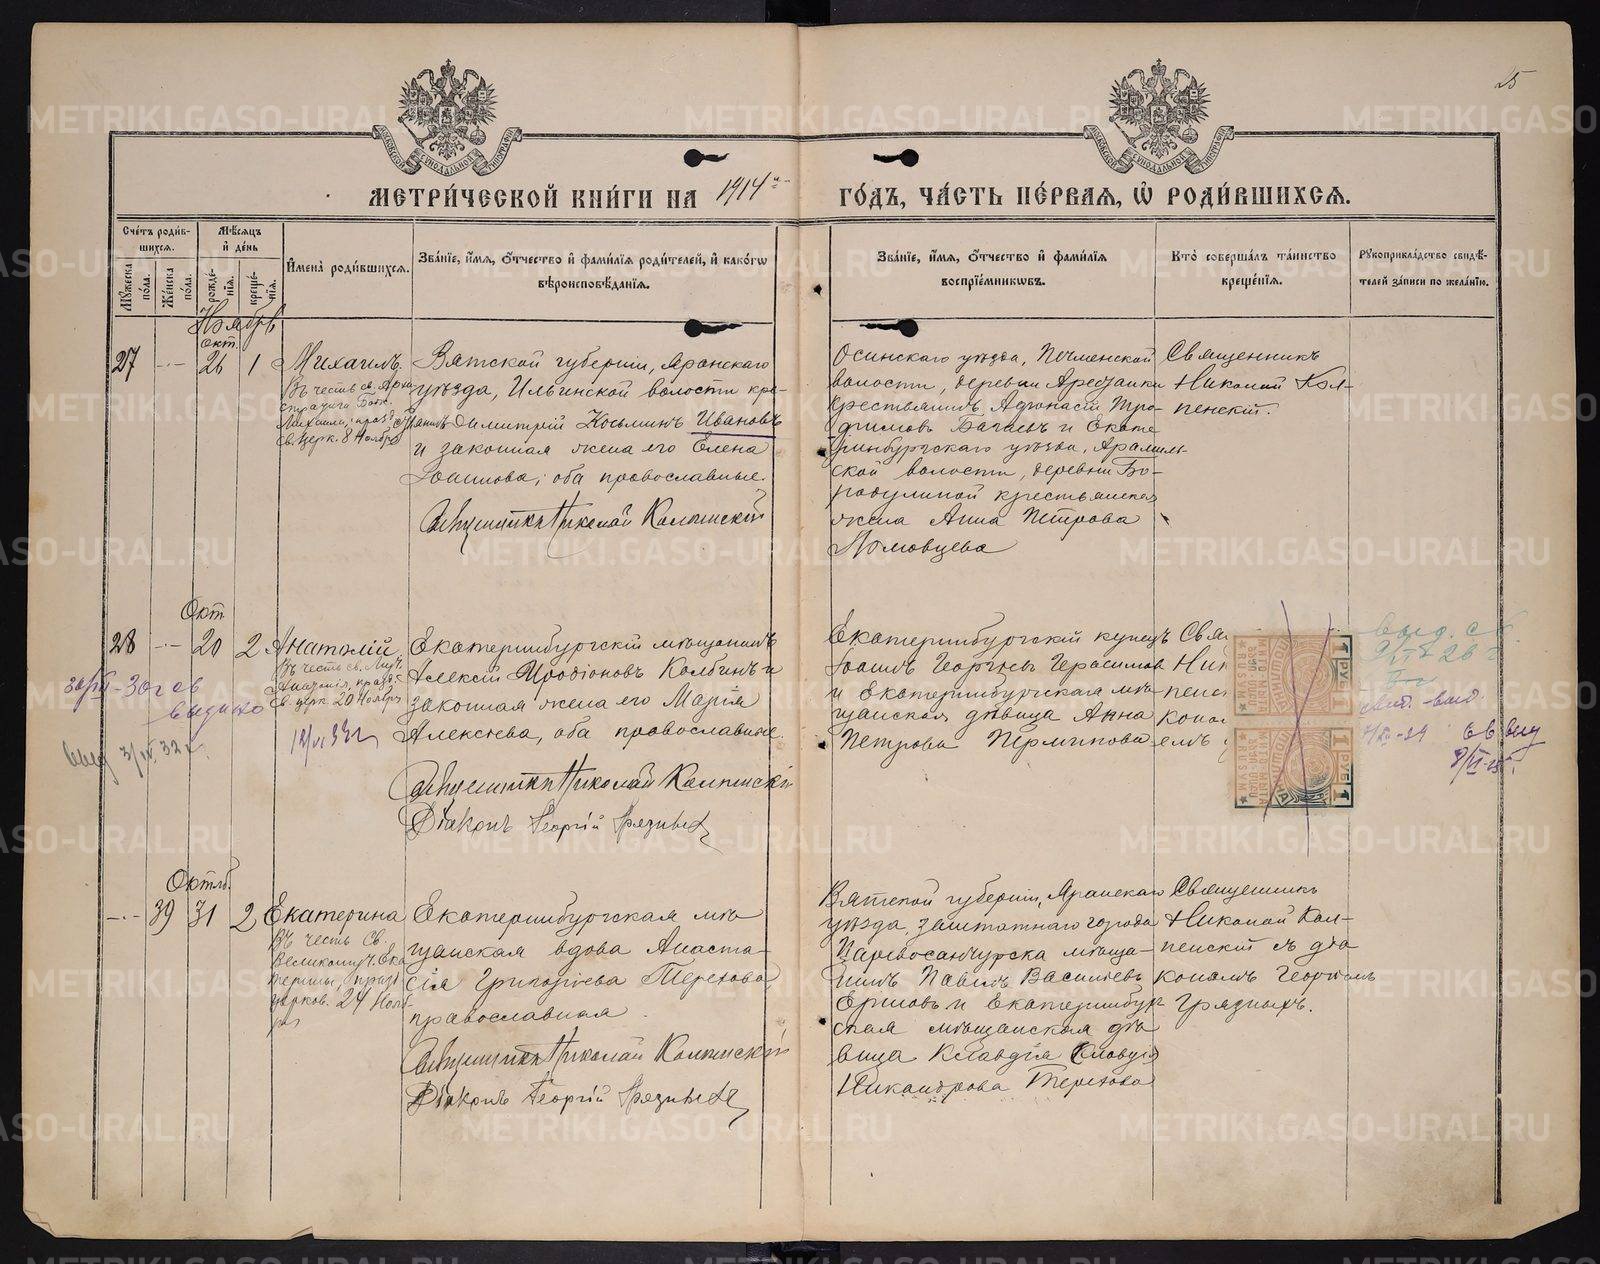 25
МЕТРИ́ЧЕСКОЙ КНИ́ГИ НА 1914 й
ГО́ДЪ, ЧА́СТЬ ПЕ́РВАЯ, Ѡ РОДИ́ВШИХСЯ.
Сче́тъ роди́вшихся.
Мꙋ́жеска по́ла.
Же́нска по́ла.
Мѣ́сяцъ и҆ де́нь
рожде́нїя.
креще́нїя.
И҆мена̀ роди́вшихся.
Зва́нїе, и҆́мя, ѻ҆́тчество и҆ фами́лїя роди́телей, и҆ како́гѡ
вѣроисповѣ́данїя.
Зва́нїе, и҆́мя, ѻ҆́тчество и҆ фами́лїя
воспрїе́мникѡвъ.
Кто̀ соверша́лъ та́инство
креще́нїя.
Рꙋкоприкла́дство свидѣ́-
телей за́писи по жела́нїю.
Ноябрь
Окт.
27
26
1
Михаилъ.
Въ честь св. Арх
Михаила, празд.
св. церк. 8 Ноября
Вятской губерніи, Яранскаго
уѣзда, Ильинской волости кре-
Димитрій Косьминъ Ивановъ
и законная жена его Елена
Іоаннова, оба православные.
Священникъ Николай Колпинскій
Осинскаго уѣзда,
волости, деревни
крестьянинъ Аѳанасій Тро-
фимовъ Багаевъ и Екате-
ринбургскаго уѣзда, Арамиль-
ской волости, деревни Бо-
родулиной крестьянская
жена Анна Петрова
Ломовцева
Священникъ
Николай Кол-
пенскій.
Окт
28
20
2
Анатолій
Въ честь св.
Анатолія, празд.
св. церк. 20 Ноября
Екатеринбургскій мѣщанинъ
Алексій Иродіоновъ Колбинъ и
законная жена его Марія
Алексѣева, оба православные.
Священникъ Николай Колпинскій
Діаконъ Георгій Грязныхъ
Екатеринбургскій купецъ
Іоаннъ Георгіевъ Герасимовъ
и Екатеринбургская мѣ-
щанская дѣвица Анна
Петрова Пермикова
Свя
Ник
пенс
кона
емъ
30 г св
выдано
12/VI 33 г
выд 3/IV 32 г.
1 РУБ
1 РУБ
ПОШЛИНА
выд. св.
св выд
Октяб.
39
31
2
Екатерина
Въ честь Св.
Великомуч. Ека
терины, празд
церков. 24 Нояб
ря
Екатеринбургская мѣ-
щанская вдова Анаста-
сія Григорьева Терехова
православная.
Священникъ Николай Колпинскій
Діаконъ Георгій Грязныхъ
Вятской губерніи, Яранскаго
уѣзда, заштатнаго города
Царевосанчурска мѣща-
нинъ Павелъ Васильевъ
Ершовъ и Екатеринбург
ская мѣщанская дѣ-
вица Клавдія
Никандрова Терехова
Священникъ
Николай Кол-
пенскій съ діа
кономъ Георгіемъ
Грязныхъ.